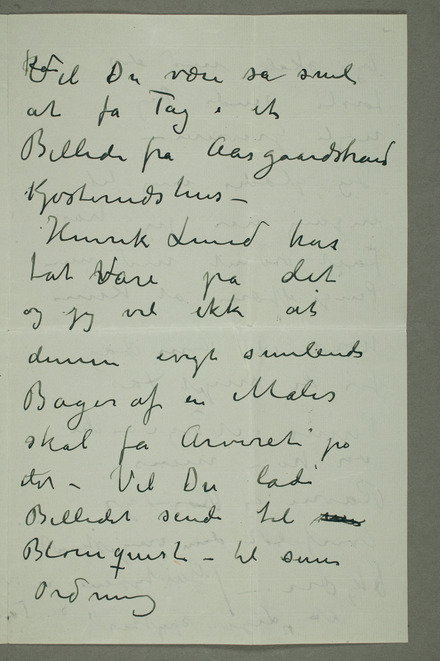 Vil Du være så snil
at få Tag i et
Billede fra Aasgaardstrand
Kjøsterudshus –
Henrik Lund har
tat Vare på det
og jeg vil ikke at
denne evigt smilende
Bager af en Maler
skal få Arveret på
det – Vil Du lade
Billedet sende til
Blomquist – til sines
Ordning